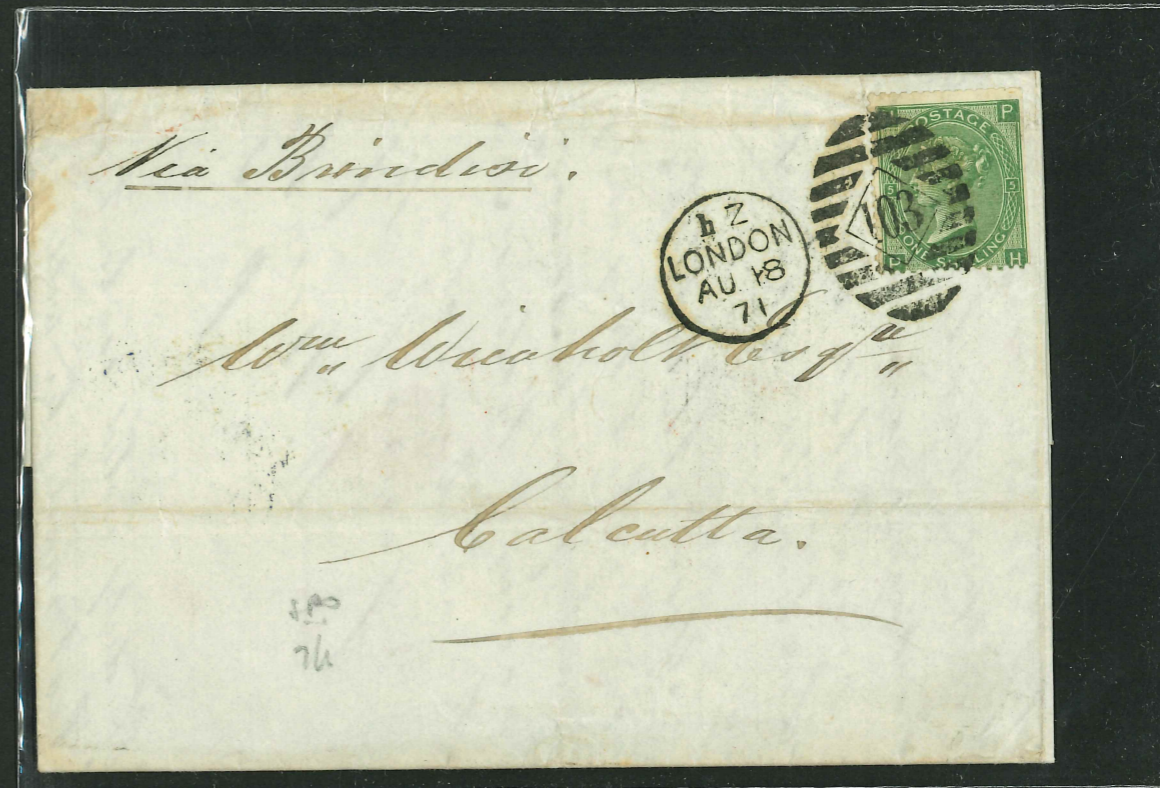 Via Brindisi.
POSTAGE
P
5 5
103
ONE SHILLING
H
h Z
LONDON
AU 18
71
Wm Wienholt Esqre
Calcutta.